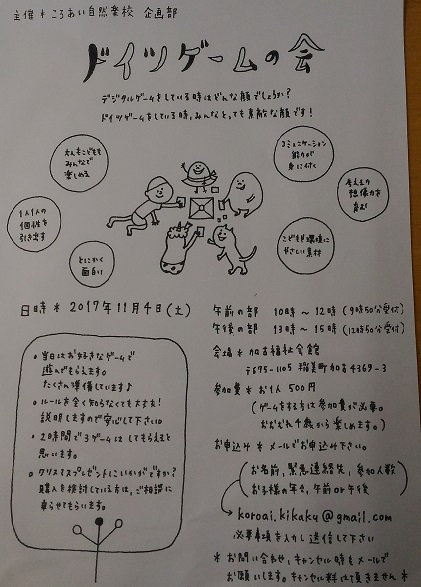 主催＊ころあい自然楽校 企画部
ドイツゲームの会
デジタルゲームをしている時はどんな顔でしょうか？
ドイツゲームをしている時、みんなとっても素敵な顔です！
大人もこどもも
みんなで
楽しめる
コミュニケーション
能力が
身に付く
考える力
想像力を
育む
1人1人の
個性を
引き出す
とにかく
面白い
こどもや環境に
やさしい素材
日時＊2017年11月4日(土)
午前の部 10時〜12時(9時50分受付)
午後の部 13時〜15時(12時50分受付)
会場＊加古福祉会館
〒675-1105 稲美町加古4369-3
参加費＊お1人500円
(ゲームをする方は参加費が必要。
おおむね4歳から楽しめます。)
お申込み＊メールでお申込み下さい。
お名前、緊急連絡先、参加人数
お子様の年令、午前or午後
koroai.kikaku@gmail.com
必要事項を入力し送信して下さい
＊お問い合わせ、キャンセル時もメールで
お願いします。キャンセル料は頂きません＊
当日はお好きなゲームで
遊んでもらえます。
たくさん準備しています♪
ルールを全く知らなくても大丈夫！
説明しますので安心して下さい。
2時間で3ゲームはしてもらえると
思います。
クリスマスプレゼントにいかがですか？
購入を検討している方は、ご相談に
乗らせてもらいます。